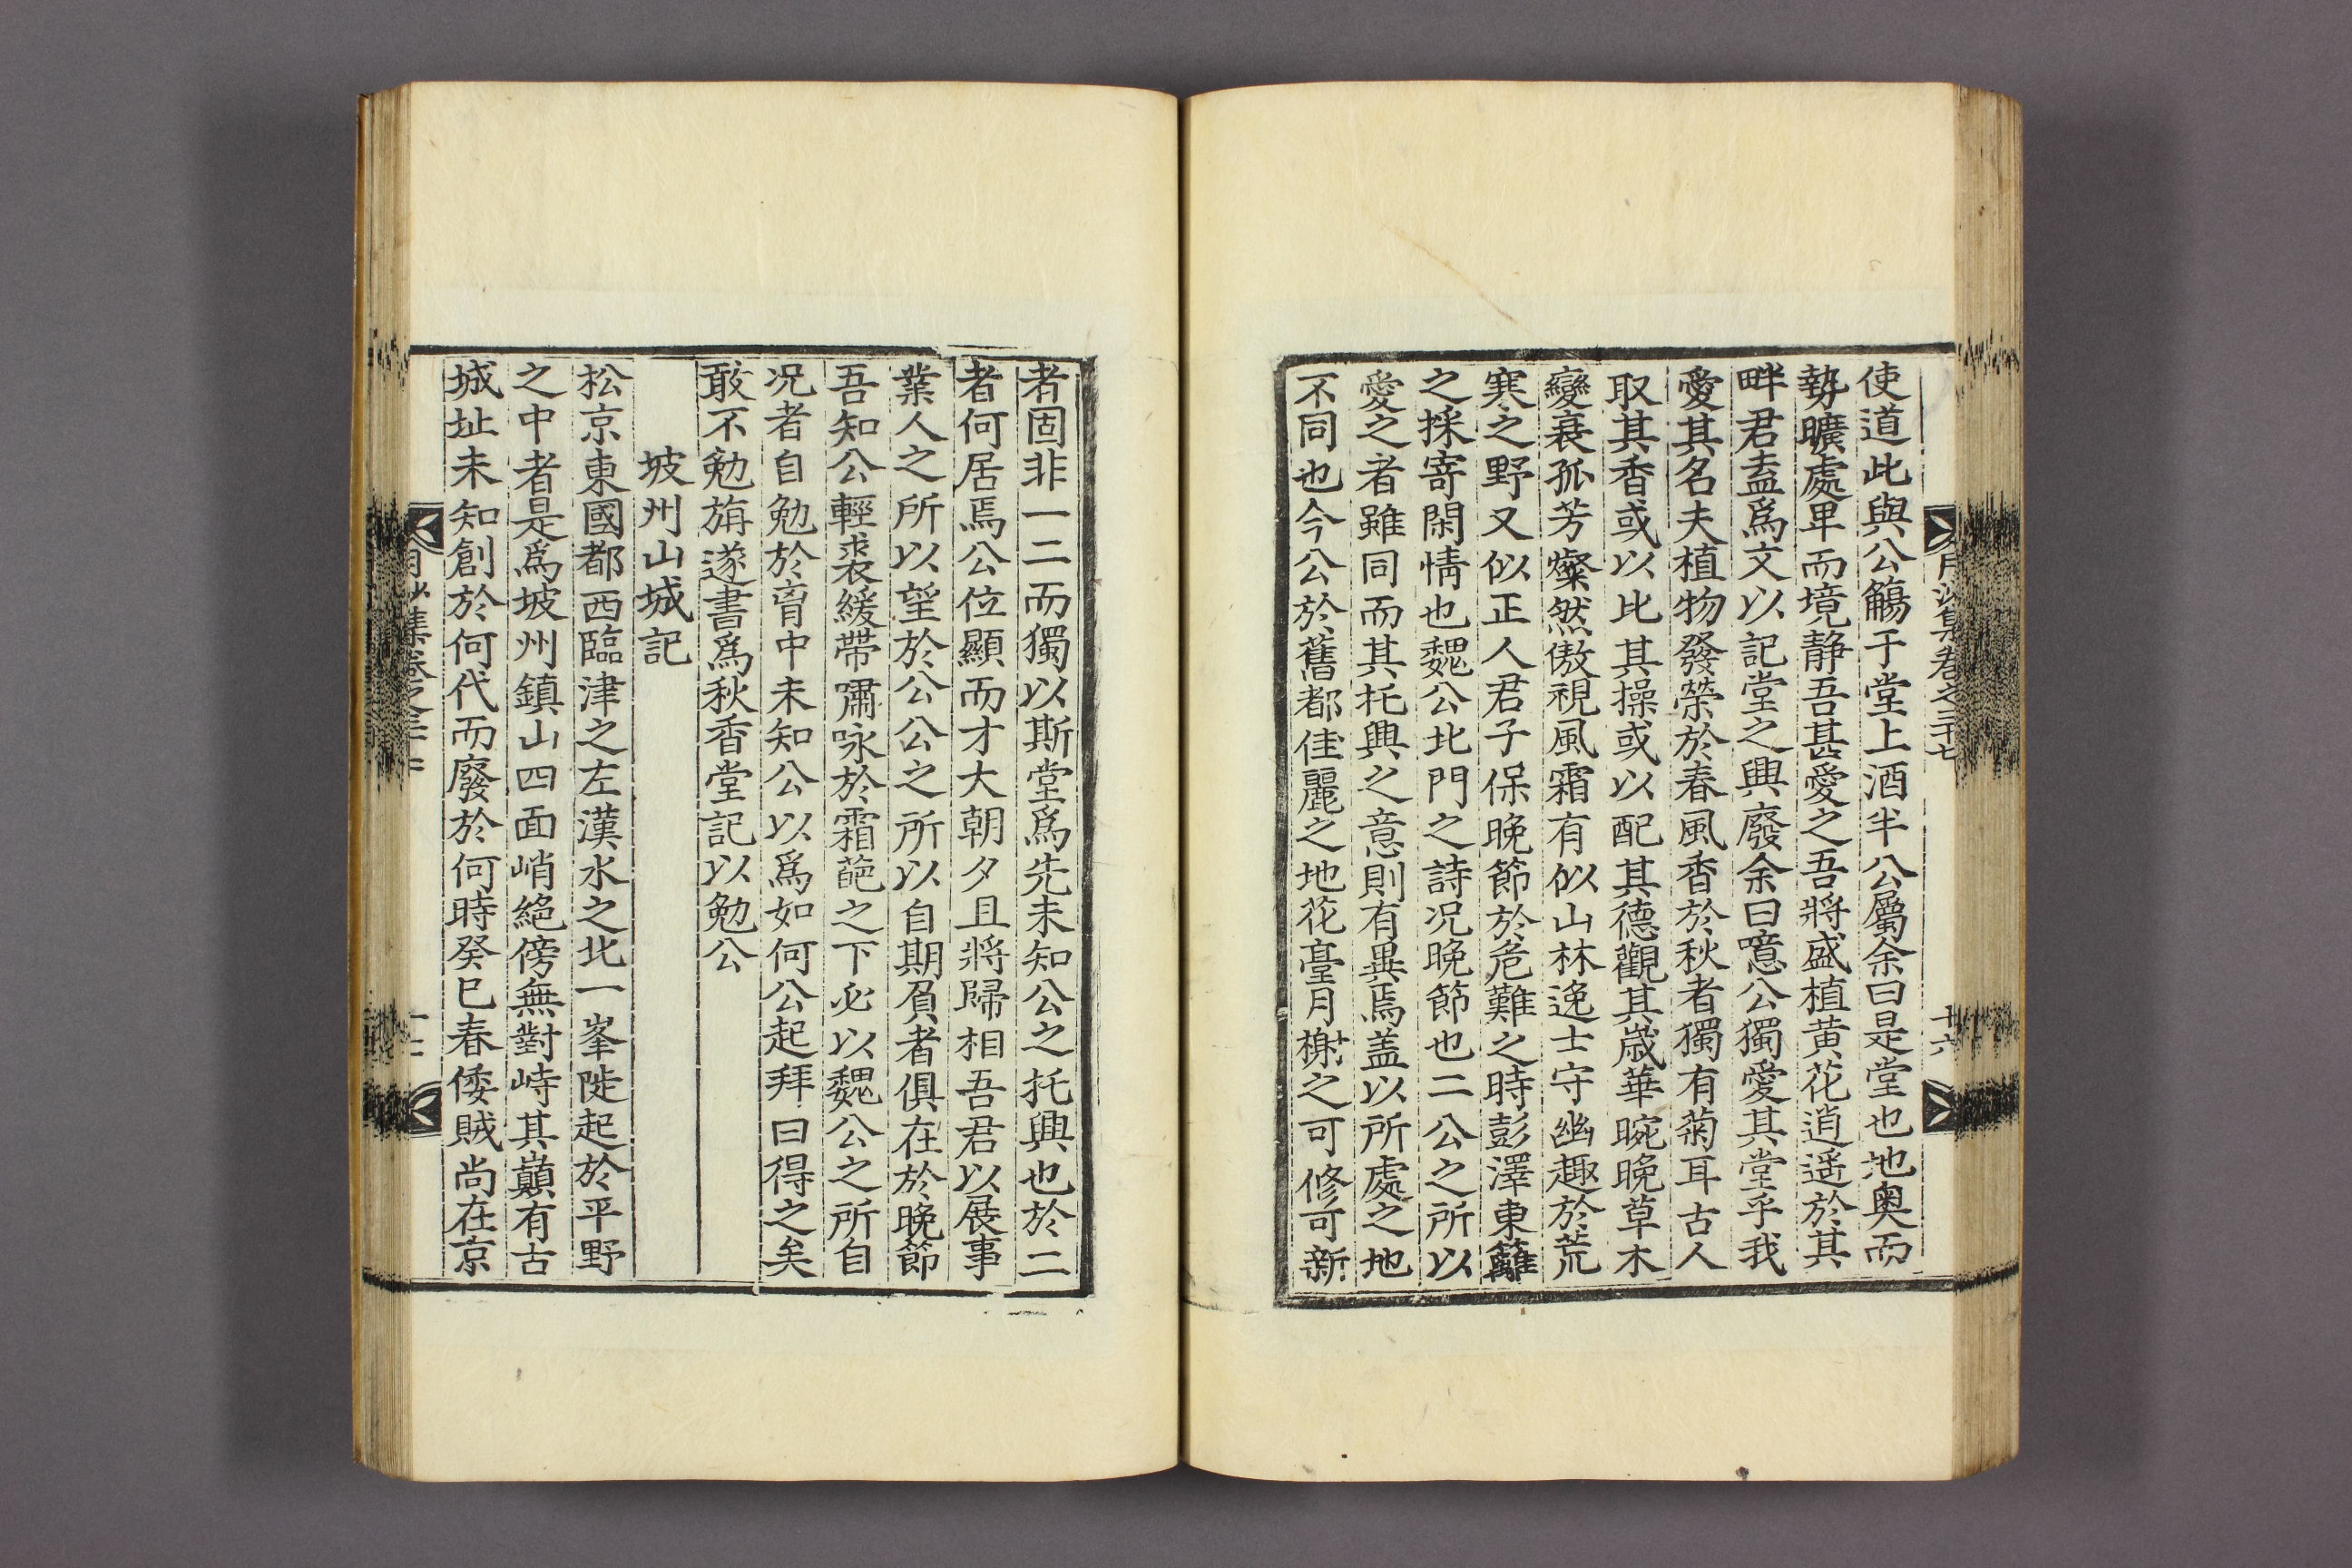 使道此與公觴于堂上酒半公屬余曰是堂也地奧而
勢曠處卑而境静吾甚愛之吾將盛植黄花逍遥於其
畔君盍爲文以記堂之興廢余曰噫公獨愛其堂乎我
愛其名夫植物發榮於春風香於秋者獨有菊耳古人
取其香或以比其操或以配其德觀其歳華晼晚草木
變衰孤芳燦然傲視風霜有似山林逸士守幽趣於荒
寒之野又似正人君子保晚節於危難之時彭澤東籬
之採寄閑情也魏公北門之詩况晚節也二公之所以
愛之者雖同而其托興之意則有異焉盖以所處之地
不同也今公於舊都佳麗之地花臺月榭之可修可新
月沙集卷之三十七
十六
者固非一二而獨以斯堂爲先未知公之托興也於二
者何居焉公位顯而才大朝夕且將歸相吾君以展事
業人之所以望於公公之所以自期負者俱在於晚節
吾知公輕裘緩帶嘯咏於霜葩之下必以魏公之所自
况者自勉於胷中未知公以爲如何公起拜曰得之矣
敢不勉旃遂書爲秋香堂記以勉公
坡州山城記
松京東國都西臨津之左漢水之北一峯陡起於平野
之中者是爲坡州鎮山四面峭絶傍無對峙其巓有古
城址未知創於何代而廢於何時癸巳春倭賊尚在京